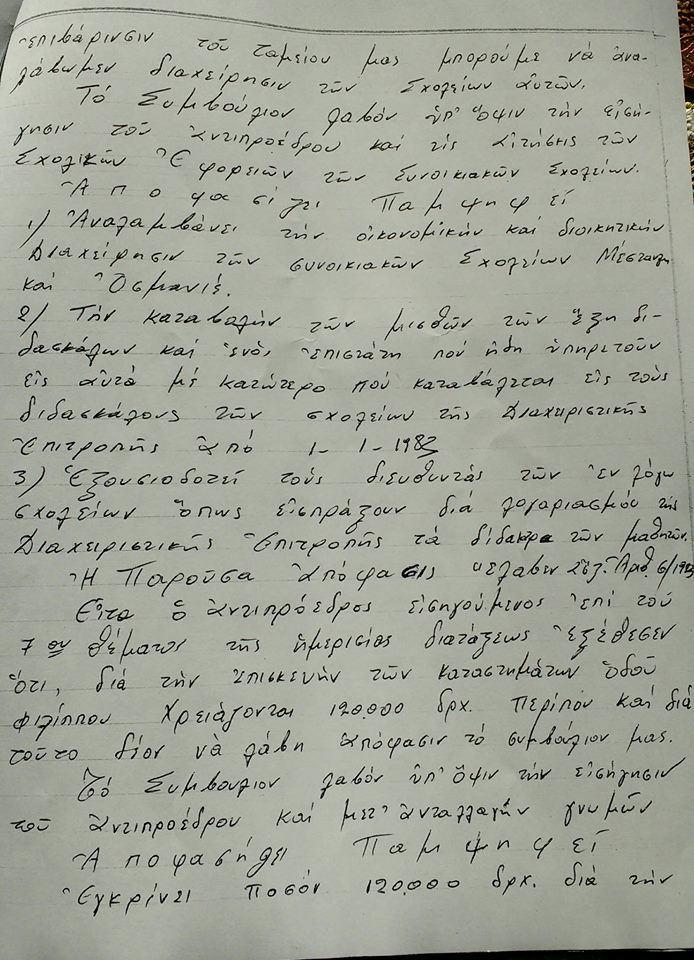 ἐπιβάρινσιν τοῦ ταμείου μας μποροῦμε νά ἀνα-
λάβωμεν διαχείρησιν τῶν Σχολείων αὐτῶν.
Τό Συμβούλιον λαβόν ὑπ' ὄψιν τήν εἰσή-
γησιν τοῦ ἀντιπροέδρου καί τίς αἰτήσης τῶν
Σχολικῶν Ἐφορειῶν τῶν Συνοικιακῶν Σχολείων.
Ἀ π ο φα σί ζει Πα μ ψη φ εί
1) Ἀναλαμβάνει τήν οἰκονομικήν καί διοικητικήν
Διαχείρησιν τῶν συνοικιακῶν Σχολείων
καί Ὀσμανιέ.
2) Τήν καταβολήν τῶν μισθῶν τῶν ἕξη δι-
δασκάλων καί ἑνός ἐπιστάτη πού ἤδη ὑπηρετοῦν
εἰς αὐτά μέ κατώτερο πού καταβάλεται εἰς τούς
διδασκάλους τῶν σχολείων τῆς Διαχειριστικῆς
Ἐπιτροπῆς ἀπό 1-1-1983
3) Ἐξουσιοδοτεῖ τούς διευθυντάς τῶν ἐν λόγω
σχολείων ὅπως εἰσπράξουν διά λογαριασμόν τῆς
Διαχειριστικῆς Ἐπιτροπῆς τά δίδακτρα τῶν μαθητῶν.
Ἡ Παροῦσα ἀπόφασις ἔλαβεν αὔξ. Ἀριθ. 6/
Εἶτα ὁ ἀντιπρόεδρος εἰσηγούμενος ἐπί τοῦ
7ου θέματος τῆς ἡμερισίας διατάξεως ἐξέθεσεν
ὅτι, διά τήν ἐπισκευήν τῶν καταστημάτων ὁδοῦ
φιλίππου χρειάζονται 120.000 δρχ. περίπου καί διά
τοῦτο δέον νά λάβη ἀπόφασιν τό συμβούλιον μας.
Τό Συμβουλιον λαβόν ὑπ' ὄψιν τήν εἰσήγησιν
τοῦ ἀντιπροέδρου καί μετ' ἀνταλλαγήν γνωμῶν
Ἀ ποφασήζει Πα μ ψη φ εί
Ἐγκρίνει ποσόν 120.000 δρχ. διά τήν